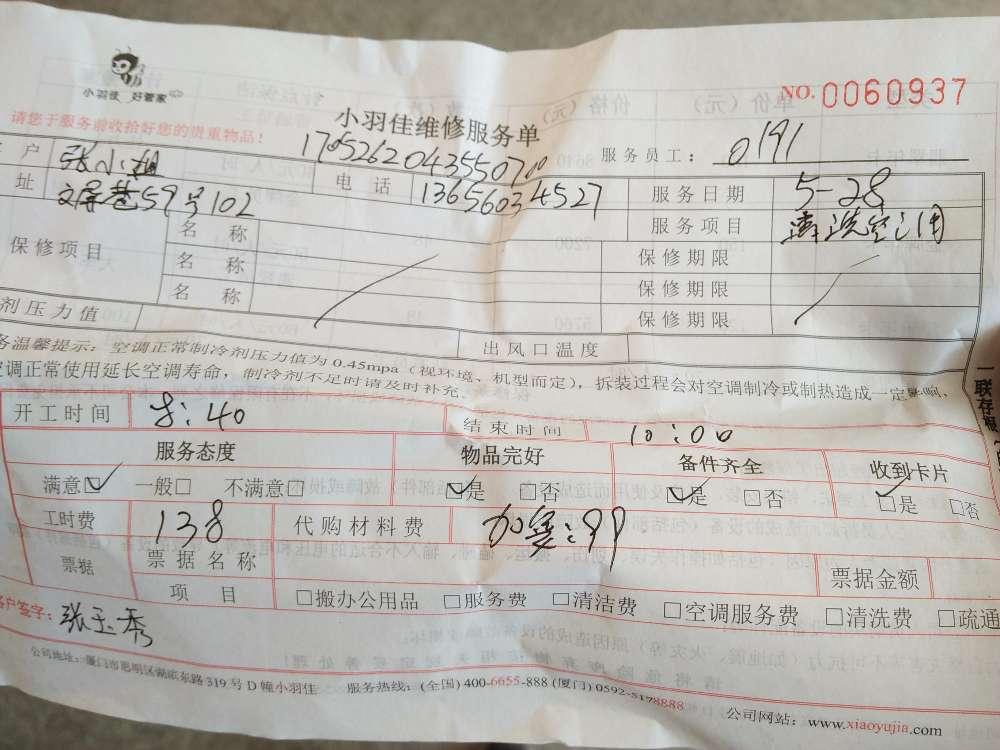 小羽佳 好管家
NO. 0060937
请您于服务前收拾好您的贵重物品！
小羽佳维修服务单
170526204355070
服务员工： 0191
户 张小姐 电话 13656034527 服务日期 5-28
址 文屏巷59号102 服务项目 清洗空调
保修项目 名称 保修期限
名称 保修期限
名称 保修期限
剂压力值 出风口温度
务温馨提示：空调正常制冷剂压力值为 0.45mpa（视环境、机型而定），拆装过程会对空调制冷或制热造成一定影响，
调正常使用延长空调寿命，制冷剂不足时请及时补充。
一联存根
开工时间 8:40 结束时间 10:00
服务态度 物品完好 备件齐全 收到卡片
满意☑ 一般□ 不满意□ ☑是 □否 ☑是 □否 ☑是 □否
工时费 138 代购材料费 加氨:99
票据 票据名称 票据金额
项目 □搬办公用品 □服务费 □清洁费 □空调服务费 □清洗费 □疏通
客户签字： 张玉秀
公司地址：厦门市思明区湖滨东路 319 号 D 幢小羽佳 服务热线：(全国) 400-6655-888 (厦门) 0592-5178888 公司网站：www.xiaoyujia.com